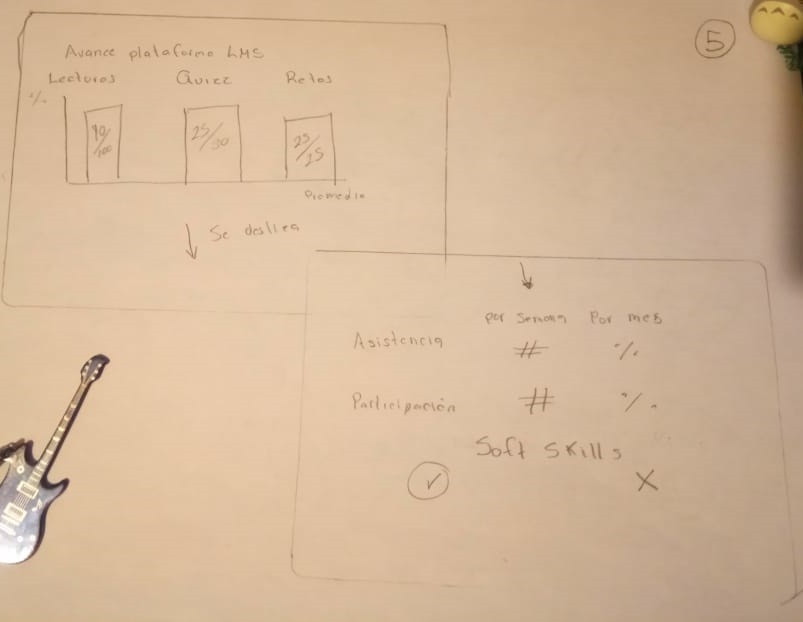 5
Avance plataforma LMS
Lecturas Quizz Retos
%
90/100 25/30 25/25
Promedio
Se desliza
Por semana Por mes
Asistencia # %
Participación # %
Soft Skills